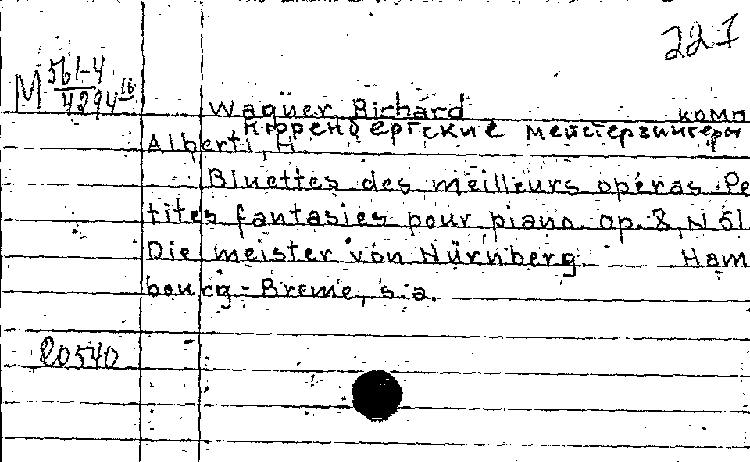 227
М 561-4
4294 16
Wagner, Richard комп
Нюренбергские мейстерзингеры
Alberti, H.
Bluettes des meilleurs opéras. Pe
tites fantasies pour piano. op. 8, N 51
Die meister von Nürnberg. Ham
bourg - Breme, s. a.
20540